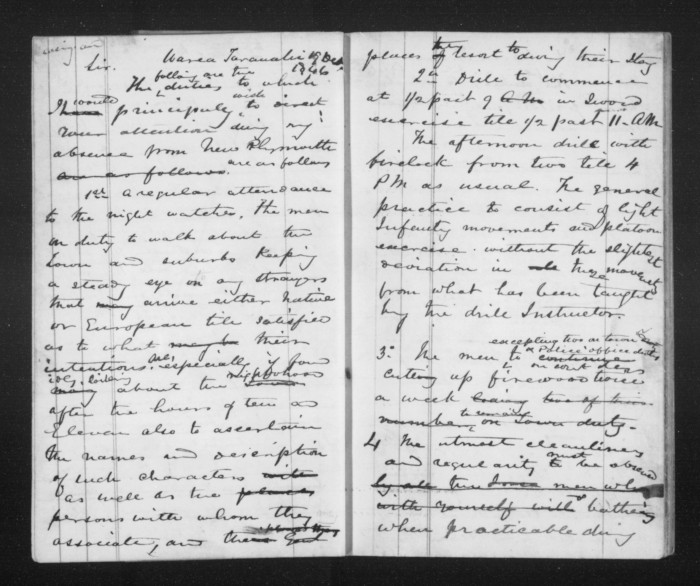 Sir. Warea Taranaki 19 Dec
1860
The following are the duties to which
I would wish principally to direct
your attention during my
absence from New Plymouth
are as follows
are as follows.
1st A regular attendance
to the night watches, The men
on duty to walk about the
town and suburbs keeping
a steady eye on any strangers
that may arrive either Native
or European till satisfied
as to what may be their
intentions, especially if found
about the
after the hours of ten or
Eleven also to ascertain
the names and description
of such characters with
as well as the places
persons with whom they
associate, and their
places of resort to during their stay
2nd Drill to commence
at 1/2 past 9 A.M. in Sword
exercise till 1/2 past 11 - A.M
The afternoon drill with
firelock from two till 4
P.M as usual. The general
practice to consist of light
Infantry movements and platoon
exercise. without the slightest
deviation in the these movements
from what has been taught
by the drill Instructor.
excepting two on town duty
or Police office duties
3d The men to continue
on court days
cutting up firewood twice
a week
to remain
number, on Town duty.
4 The utmost cleanliness
and regularity must to be observed
by all the Town men who
with yourself with bathing
when practicable during